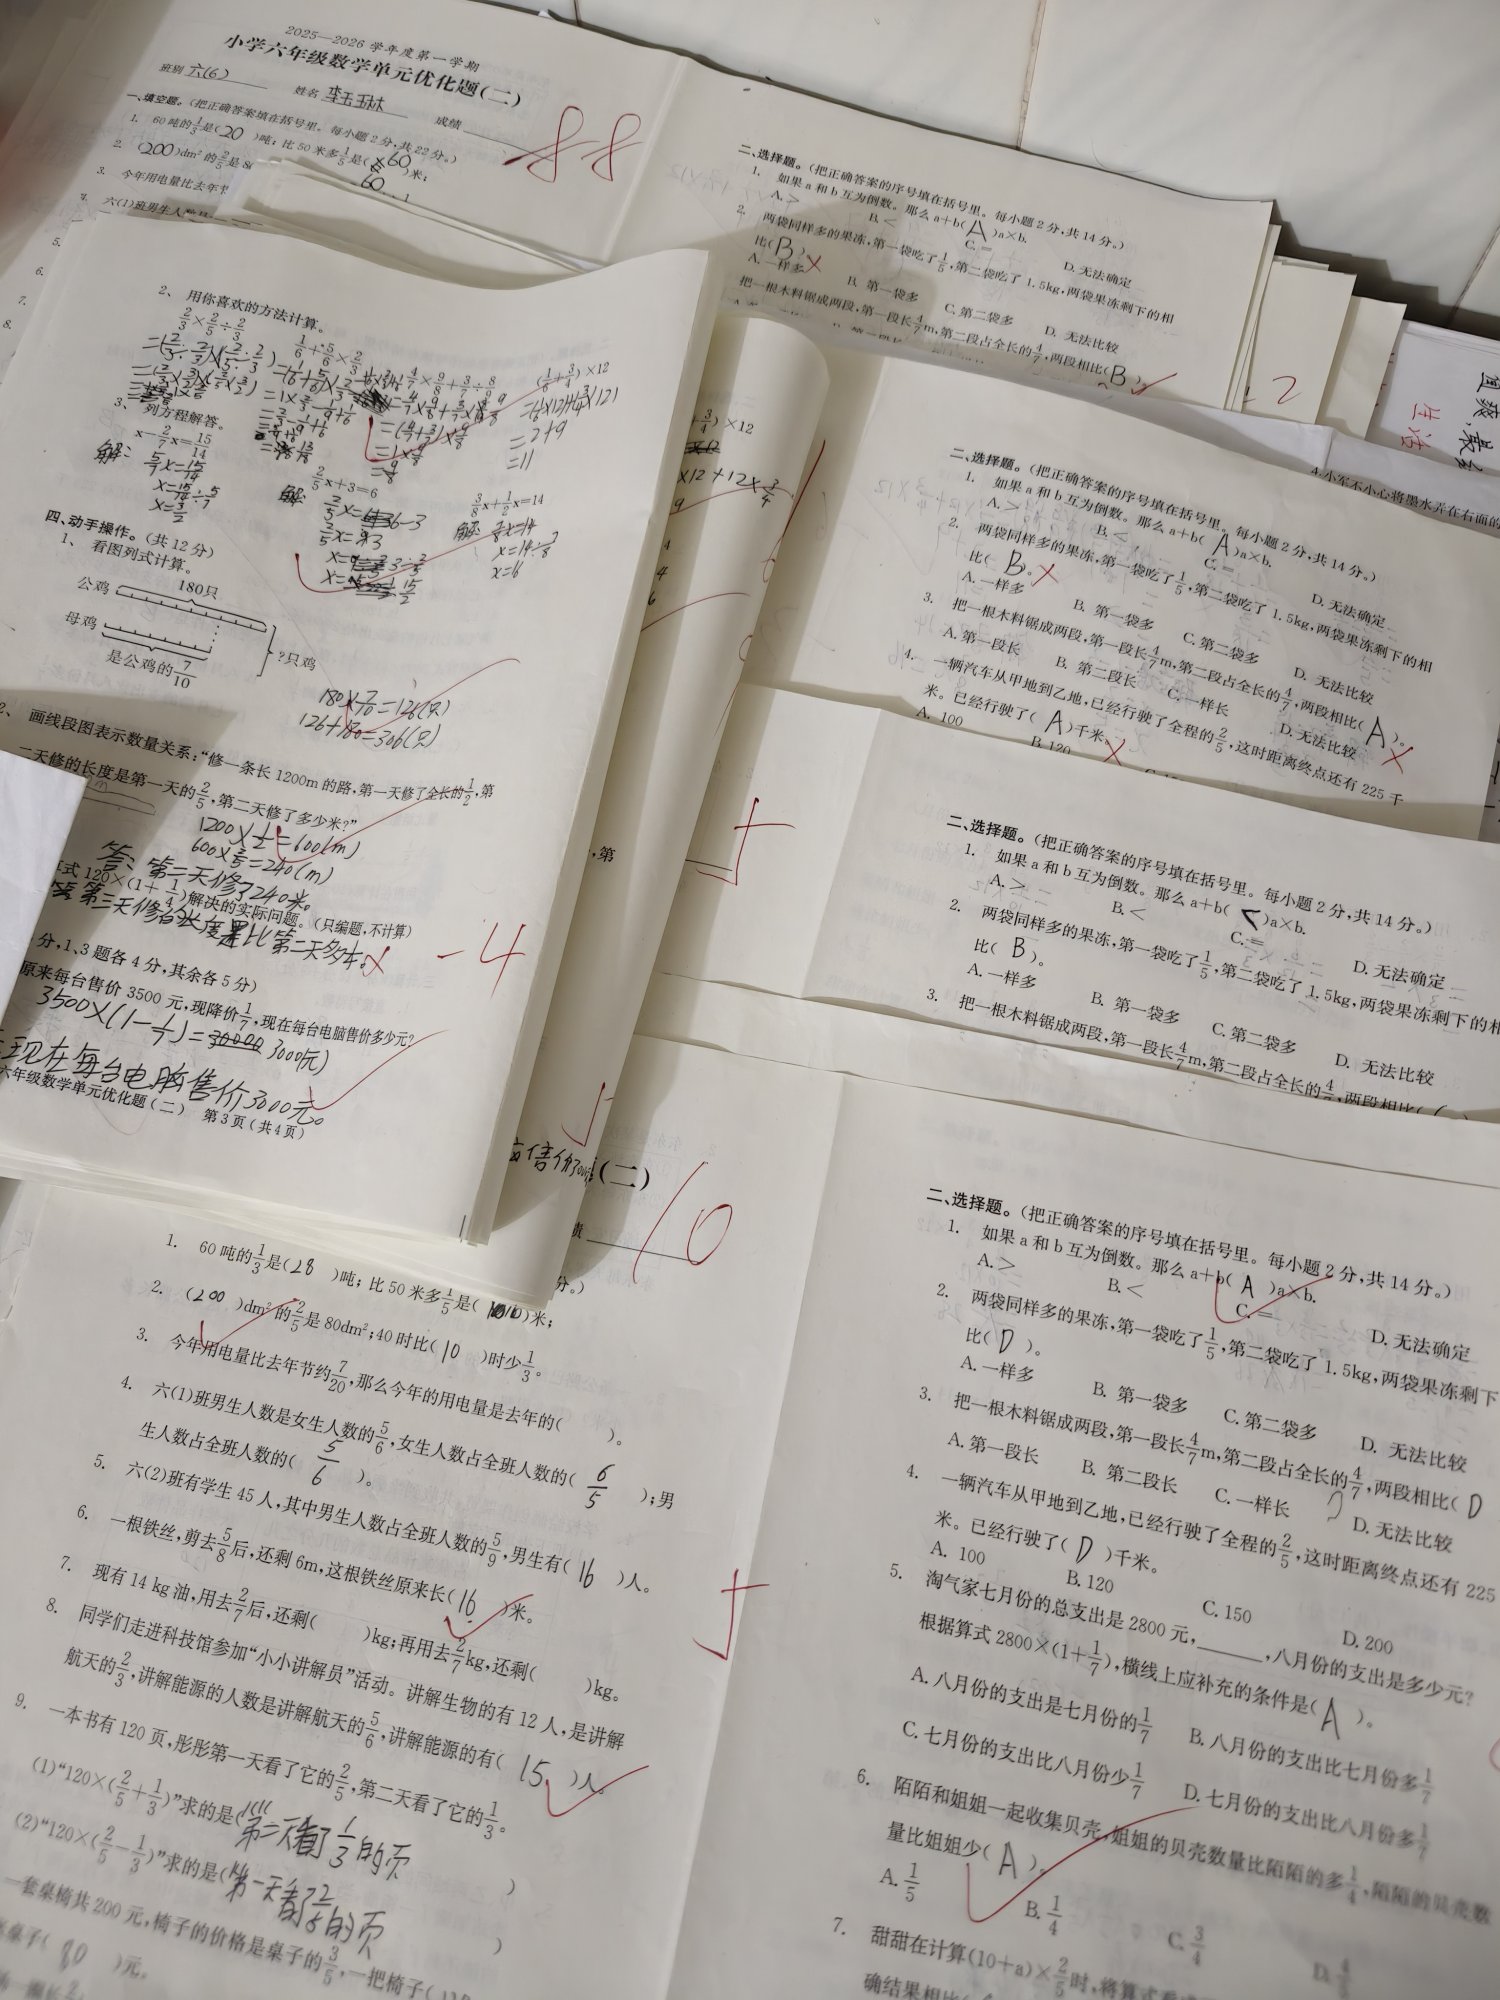 2025—2026 学年度第一学期
小学六年级数学单元优化题(二)
班别 六(6) 姓名 成绩
88
一、填空题。(把正确答案填在括号里。每小题2分,共22分。)
1. 60吨的1/3是(20)吨;比50米多1/5是(60)米;
60
2. (200)dm²的2/5是80
3. 今年用电量比去年节
4. 六(1)班男生人数是
5.
6.
7.
8.
二、选择题。(把正确答案的序号填在括号里。每小题2分,共14分。)
1. 如果a和b互为倒数。那么a+b(A)a×b.
A.> B.< C.= D.无法确定
2. 两袋同样多的果冻,第一袋吃了1/5,第二袋吃了1.5kg,两袋果冻剩下的相
比(B)。
A.一样多 B.第一袋多 C.第二袋多 D.无法比较
把一根木料锯成两段,第一段长4/7m,第二段占全长的4/7,两段相比(B)。
-2
生活
4.小军不小心将墨水弄在右面的
2、 用你喜欢的方法计算。
2/3×2/5÷2/3 1/6+5/6×2/3 4/7×9/8+3/7÷8/9 (1/6+3/4)×12
=2+9
=11
=1×9/8
=9/8
3、 列方程解答。
x-2/7x=15/14 2/5x+3=6 3/8x+1/2x=14
解: 5/7x=15/14
x=15/14÷5/7
x=3/2
解: 2/5x=6-3
2/5x=3
x=3÷2/5
x=15/2
解: 7/8x=14
x=14÷7/8
x=16
四、动手操作。(共12分)
1、 看图列式计算。
180只
公鸡
母鸡
?只鸡
是公鸡的7/10
180×7/10=126(只)
126+180=306(只)
2、 画线段图表示数量关系:“修一条长1200m的路,第一天修了全长的1/2,第
二天修的长度是第一天的2/5,第二天修了多少米?”
1200×1/2=600(m)
600×2/5=240(m)
答:第二天修了240米。
式120×(1+1/4)解决的实际问题。(只编题,不计算)
第三天修的长度是比第二天多
-4
分,1、3题各4分,其余各5分)
原来每台售价3500元,现降价1/7,现在每台电脑售价多少元?
3500×(1-1/7)=3000(元)
现在每台电脑售价3000元。
六年级数学单元优化题(二) 第3页(共4页)
+3/4)×12
×12+12×3/4
9
,第
二、选择题。(把正确答案的序号填在括号里。每小题2分,共14分。)
1. 如果a和b互为倒数。那么a+b(A)a×b.
A.> B.< C.= D.无法确定
2. 两袋同样多的果冻,第一袋吃了1/5,第二袋吃了1.5kg,两袋果冻剩下的相
比(B)。
A.一样多 B.第一袋多 C.第二袋多 D.无法比较
3. 把一根木料锯成两段,第一段长4/7m,第二段占全长的4/7,两段相比(A)。
A.第一段长 B.第二段长 C.一样长 D.无法比较
4. 一辆汽车从甲地到乙地,已经行驶了全程的2/5,这时距离终点还有225千
米。已经行驶了(A)千米。
A. 100 B.120
二、选择题。(把正确答案的序号填在括号里。每小题2分,共14分。)
1. 如果a和b互为倒数。那么a+b(<)a×b.
A.> B.< C.= D.无法确定
2. 两袋同样多的果冻,第一袋吃了1/5,第二袋吃了1.5kg,两袋果冻剩下的相
比(B)。
A.一样多 B.第一袋多 C.第二袋多 D.无法比较
3. 把一根木料锯成两段,第一段长4/7m,第二段占全长的4/7,两段相比(
(二)
10
分。)
1. 60吨的1/3是(28)吨;比50米多1/5是( )米;
2. (200)dm²的2/5是80dm²;40时比(10)时少1/3。
3. 今年用电量比去年节约7/20,那么今年的用电量是去年的( )。
4. 六(1)班男生人数是女生人数的5/6,女生人数占全班人数的(6/5);男
生人数占全班人数的(5/6)。
5. 六(2)班有学生45人,其中男生人数占全班人数的5/9,男生有(16)人。
6. 一根铁丝,剪去5/8后,还剩6m,这根铁丝原来长(16)米。
7. 现有14kg油,用去2/7后,还剩( )kg;再用去2/7kg,还剩( )kg。
8. 同学们走进科技馆参加“小小讲解员”活动。讲解生物的有12人,是讲解
航天的2/3,讲解能源的人数是讲解航天的5/6,讲解能源的有(15)人。
9. 一本书有120页,彤彤第一天看了它的2/5,第二天看了它的1/3。
(1)“120×(2/5+1/3)”求的是(第二天看了1/3的页)
(2)“120×(2/5-1/3)”求的是(第一天看了2/5的页)
一套桌椅共200元,椅子的价格是桌子的3/5,一把椅子(
桌子(80)元。
二、选择题。(把正确答案的序号填在括号里。每小题2分,共14分。)
1. 如果a和b互为倒数。那么a+b(A)a×b.
A.> B.< C.= D.无法确定
2. 两袋同样多的果冻,第一袋吃了1/5,第二袋吃了1.5kg,两袋果冻剩下
比(D)。
A.一样多 B.第一袋多 C.第二袋多 D.无法比较
3. 把一根木料锯成两段,第一段长4/7m,第二段占全长的4/7,两段相比(D
A.第一段长 B.第二段长 C.一样长 D.无法比较
4. 一辆汽车从甲地到乙地,已经行驶了全程的2/5,这时距离终点还有225
米。已经行驶了(D)千米。
A. 100 B.120 C.150 D.200
5. 淘气家七月份的总支出是2800元,______,八月份的支出是多少元?
根据算式2800×(1+1/7),横线上应补充的条件是(A)。
A.八月份的支出是七月份的1/7 B.八月份的支出比七月份多1/7
C.七月份的支出比八月份少1/7 D.七月份的支出比八月份多1/7
6. 陌陌和姐姐一起收集贝壳,姐姐的贝壳数量比陌陌的多1/4,陌陌的贝壳数
量比姐姐少(A)。
A.1/5 B.1/4 C.3/4 D.4/5
7. 甜甜在计算(10+a)×2/5时,将算式看成
确结果相比(